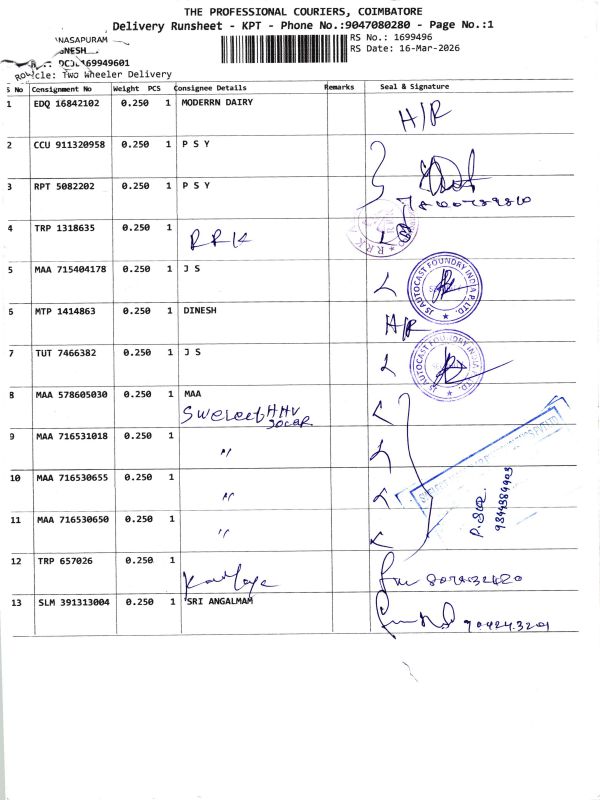 THE PROFESSIONAL COURIERS, COIMBATORE
Delivery Runsheet - KPT - Phone No.:9047080280 - Page No.:1
NASAPURAM
GNESH
RS No.: 1699496
RS Date: 16-Mar-2026
Two Wheeler Delivery
S No Consignment No Weight PCS Consignee Details Remarks Seal & Signature
1 EDQ 16842102 0.250 1 MODERRN DAIRY H/R
2 CCU 911320958 0.250 1 P S Y
3 RPT 5082202 0.250 1 P S Y
4 TRP 1318635 0.250 1 RRK
5 MAA 715404178 0.250 1 J S
JS AUTOCAST FOUNDRY INDIA P. LTD.
6 MTP 1414863 0.250 1 DINESH H/R
7 TUT 7466382 0.250 1 J S
JS AUTOCAST FOUNDRY INDIA P. LTD.
8 MAA 578605030 0.250 1 MAA
9 MAA 716531018 0.250 1 "
10 MAA 716530655 0.250 1 "
11 MAA 716530650 0.250 1 "
12 TRP 657026 0.250 1
13 SLM 391313004 0.250 1 SRI ANGALMAM